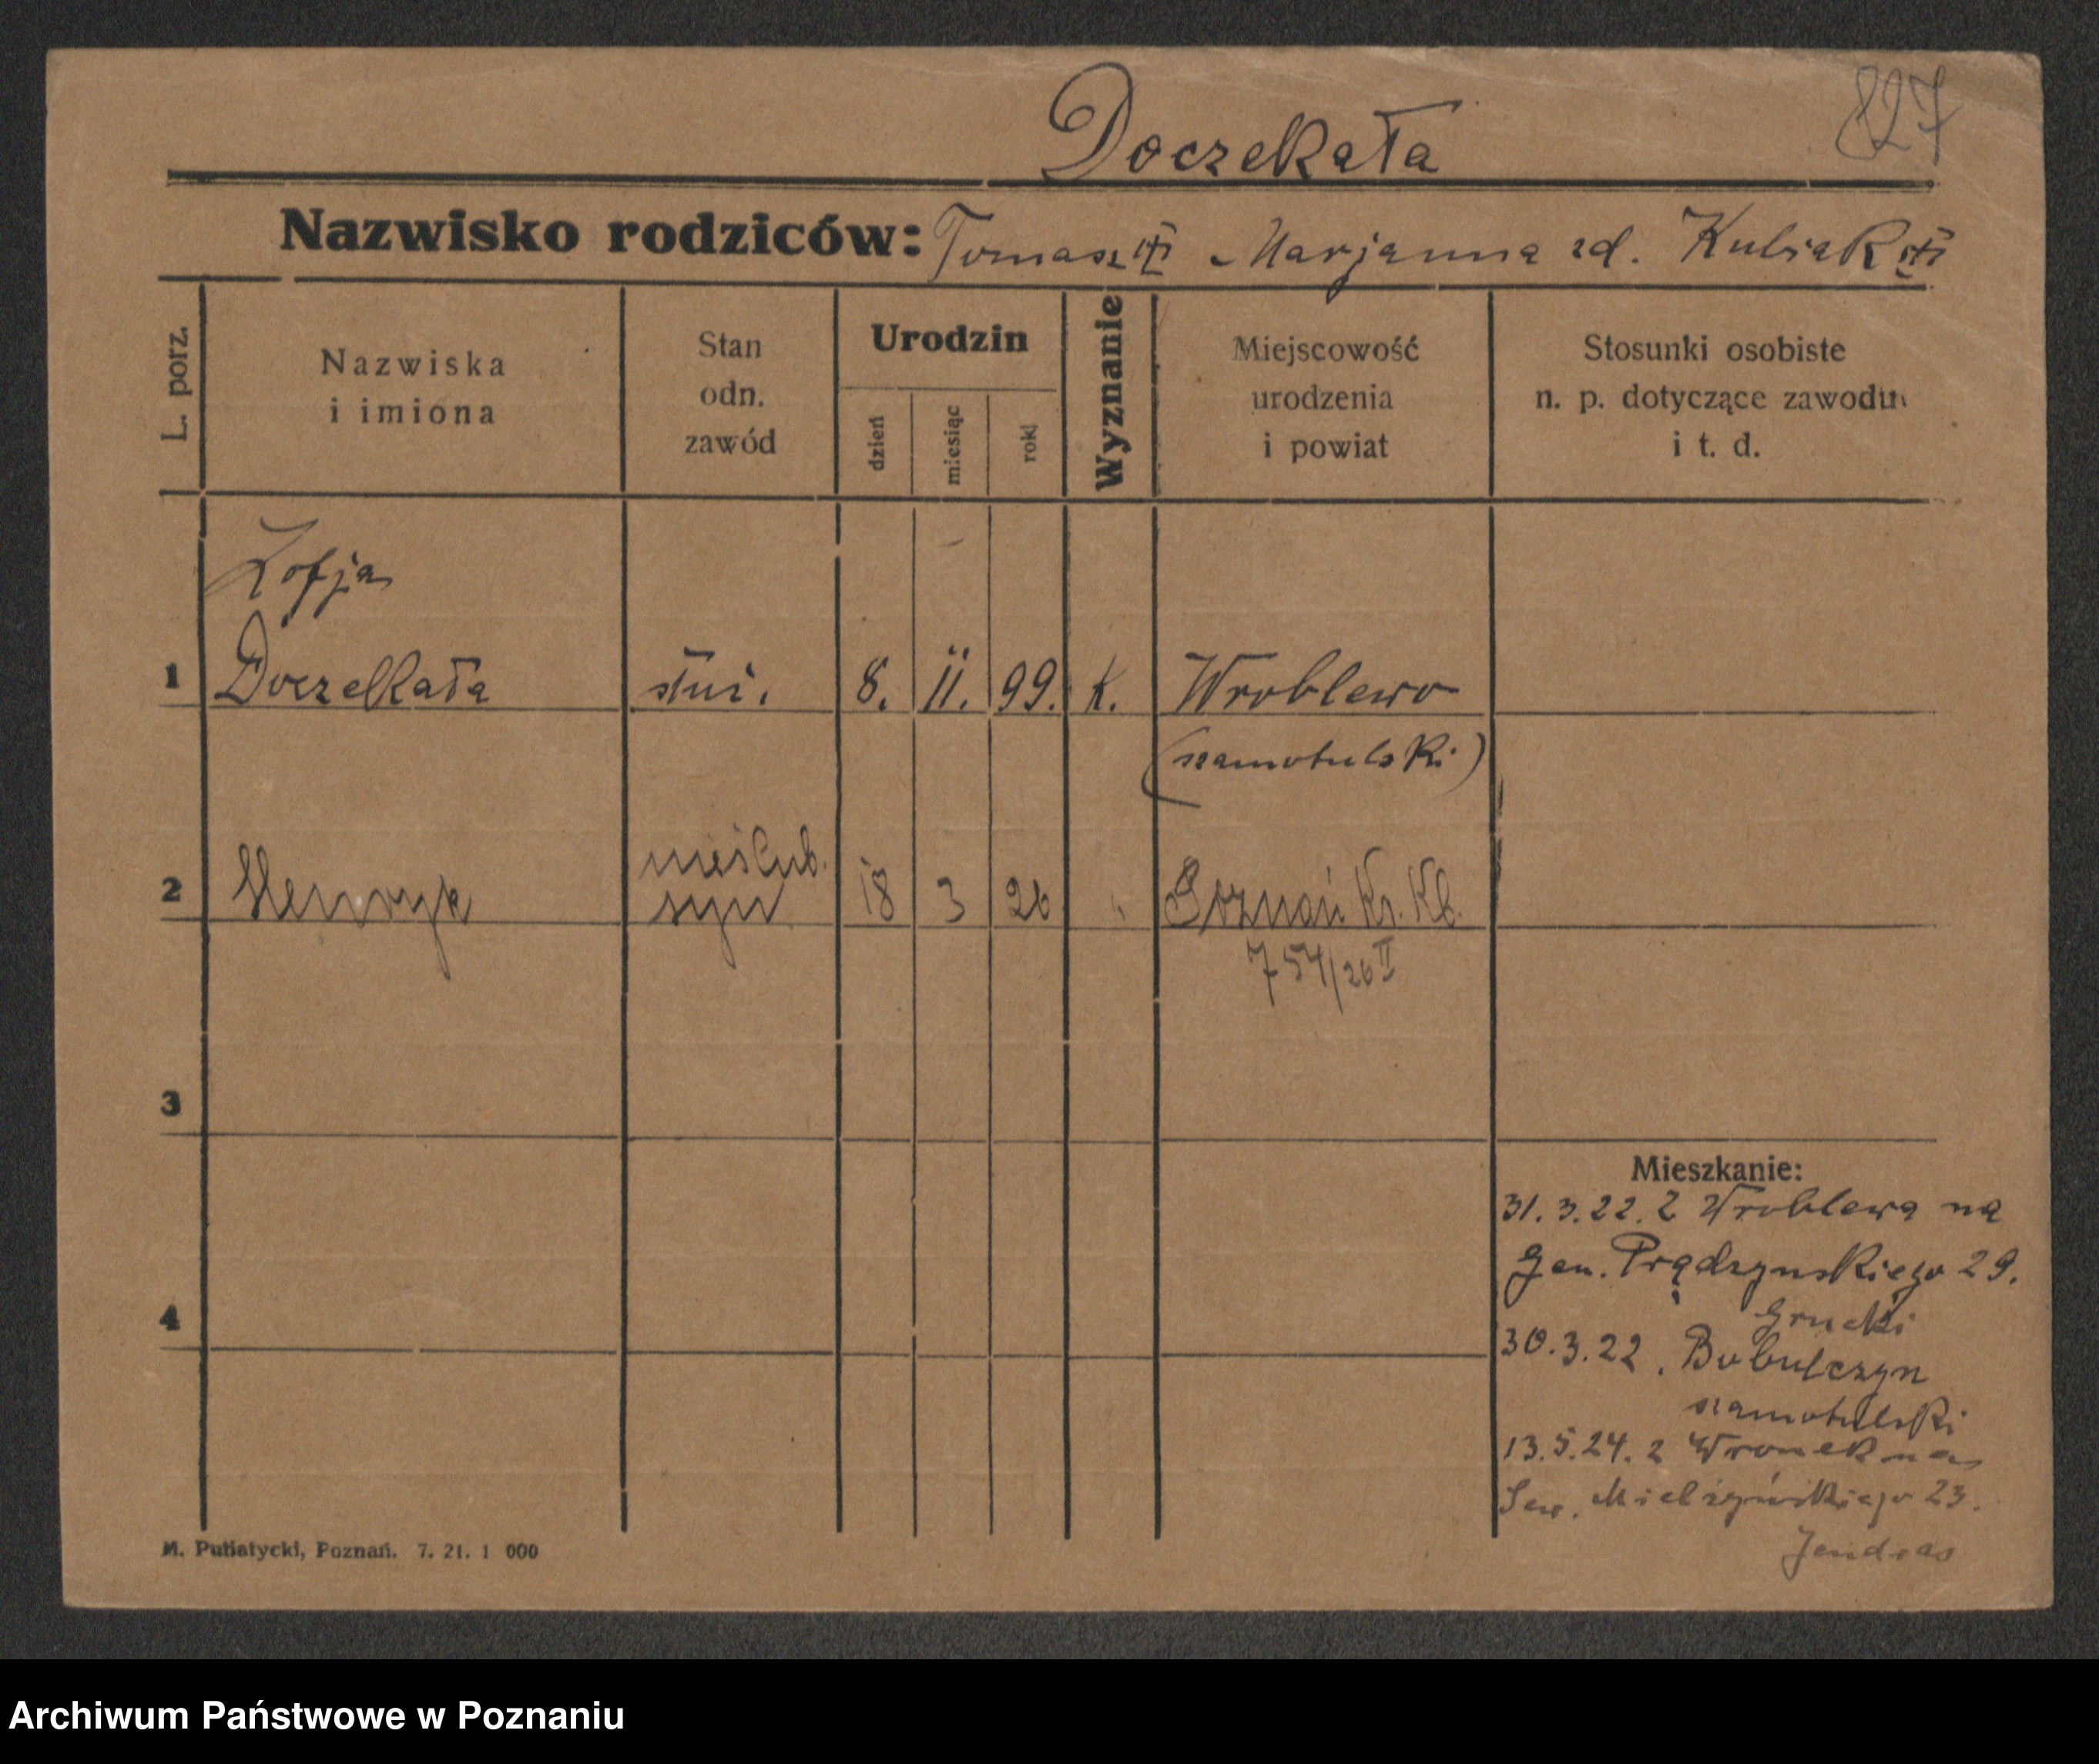 827
Doczekała
Nazwisko rodziców: Tomasz Marjanna zd. Kubiak
L. porz.
Nazwiska
i imiona
Stan
odn.
zawód
Urodzin
dzień
miesiąc
rok
Wyznanie
Miejscowość
urodzenia
i powiat
Stosunki osobiste
n. p. dotyczące zawodu
i t. d.
Zofja
1 Doczekała służ. 8. 11. 99. k. Wroblewo
(szamotulski)
nieślub.
2 Henryk syn 18 3 26 " Poznań Kr. Kb.
754/26 II
3
Mieszkanie:
31.3.22. z Wroblewa na
Gen. Prądzynskiego 29.
4
30.3.22. Bobulczyn
szamotulski
13.5.24. z Wronek na
Sew. Mielżyńskiego 23.
M. Putiatycki, Poznań. 7. 21. 1 000
Archiwum Państwowe w Poznaniu